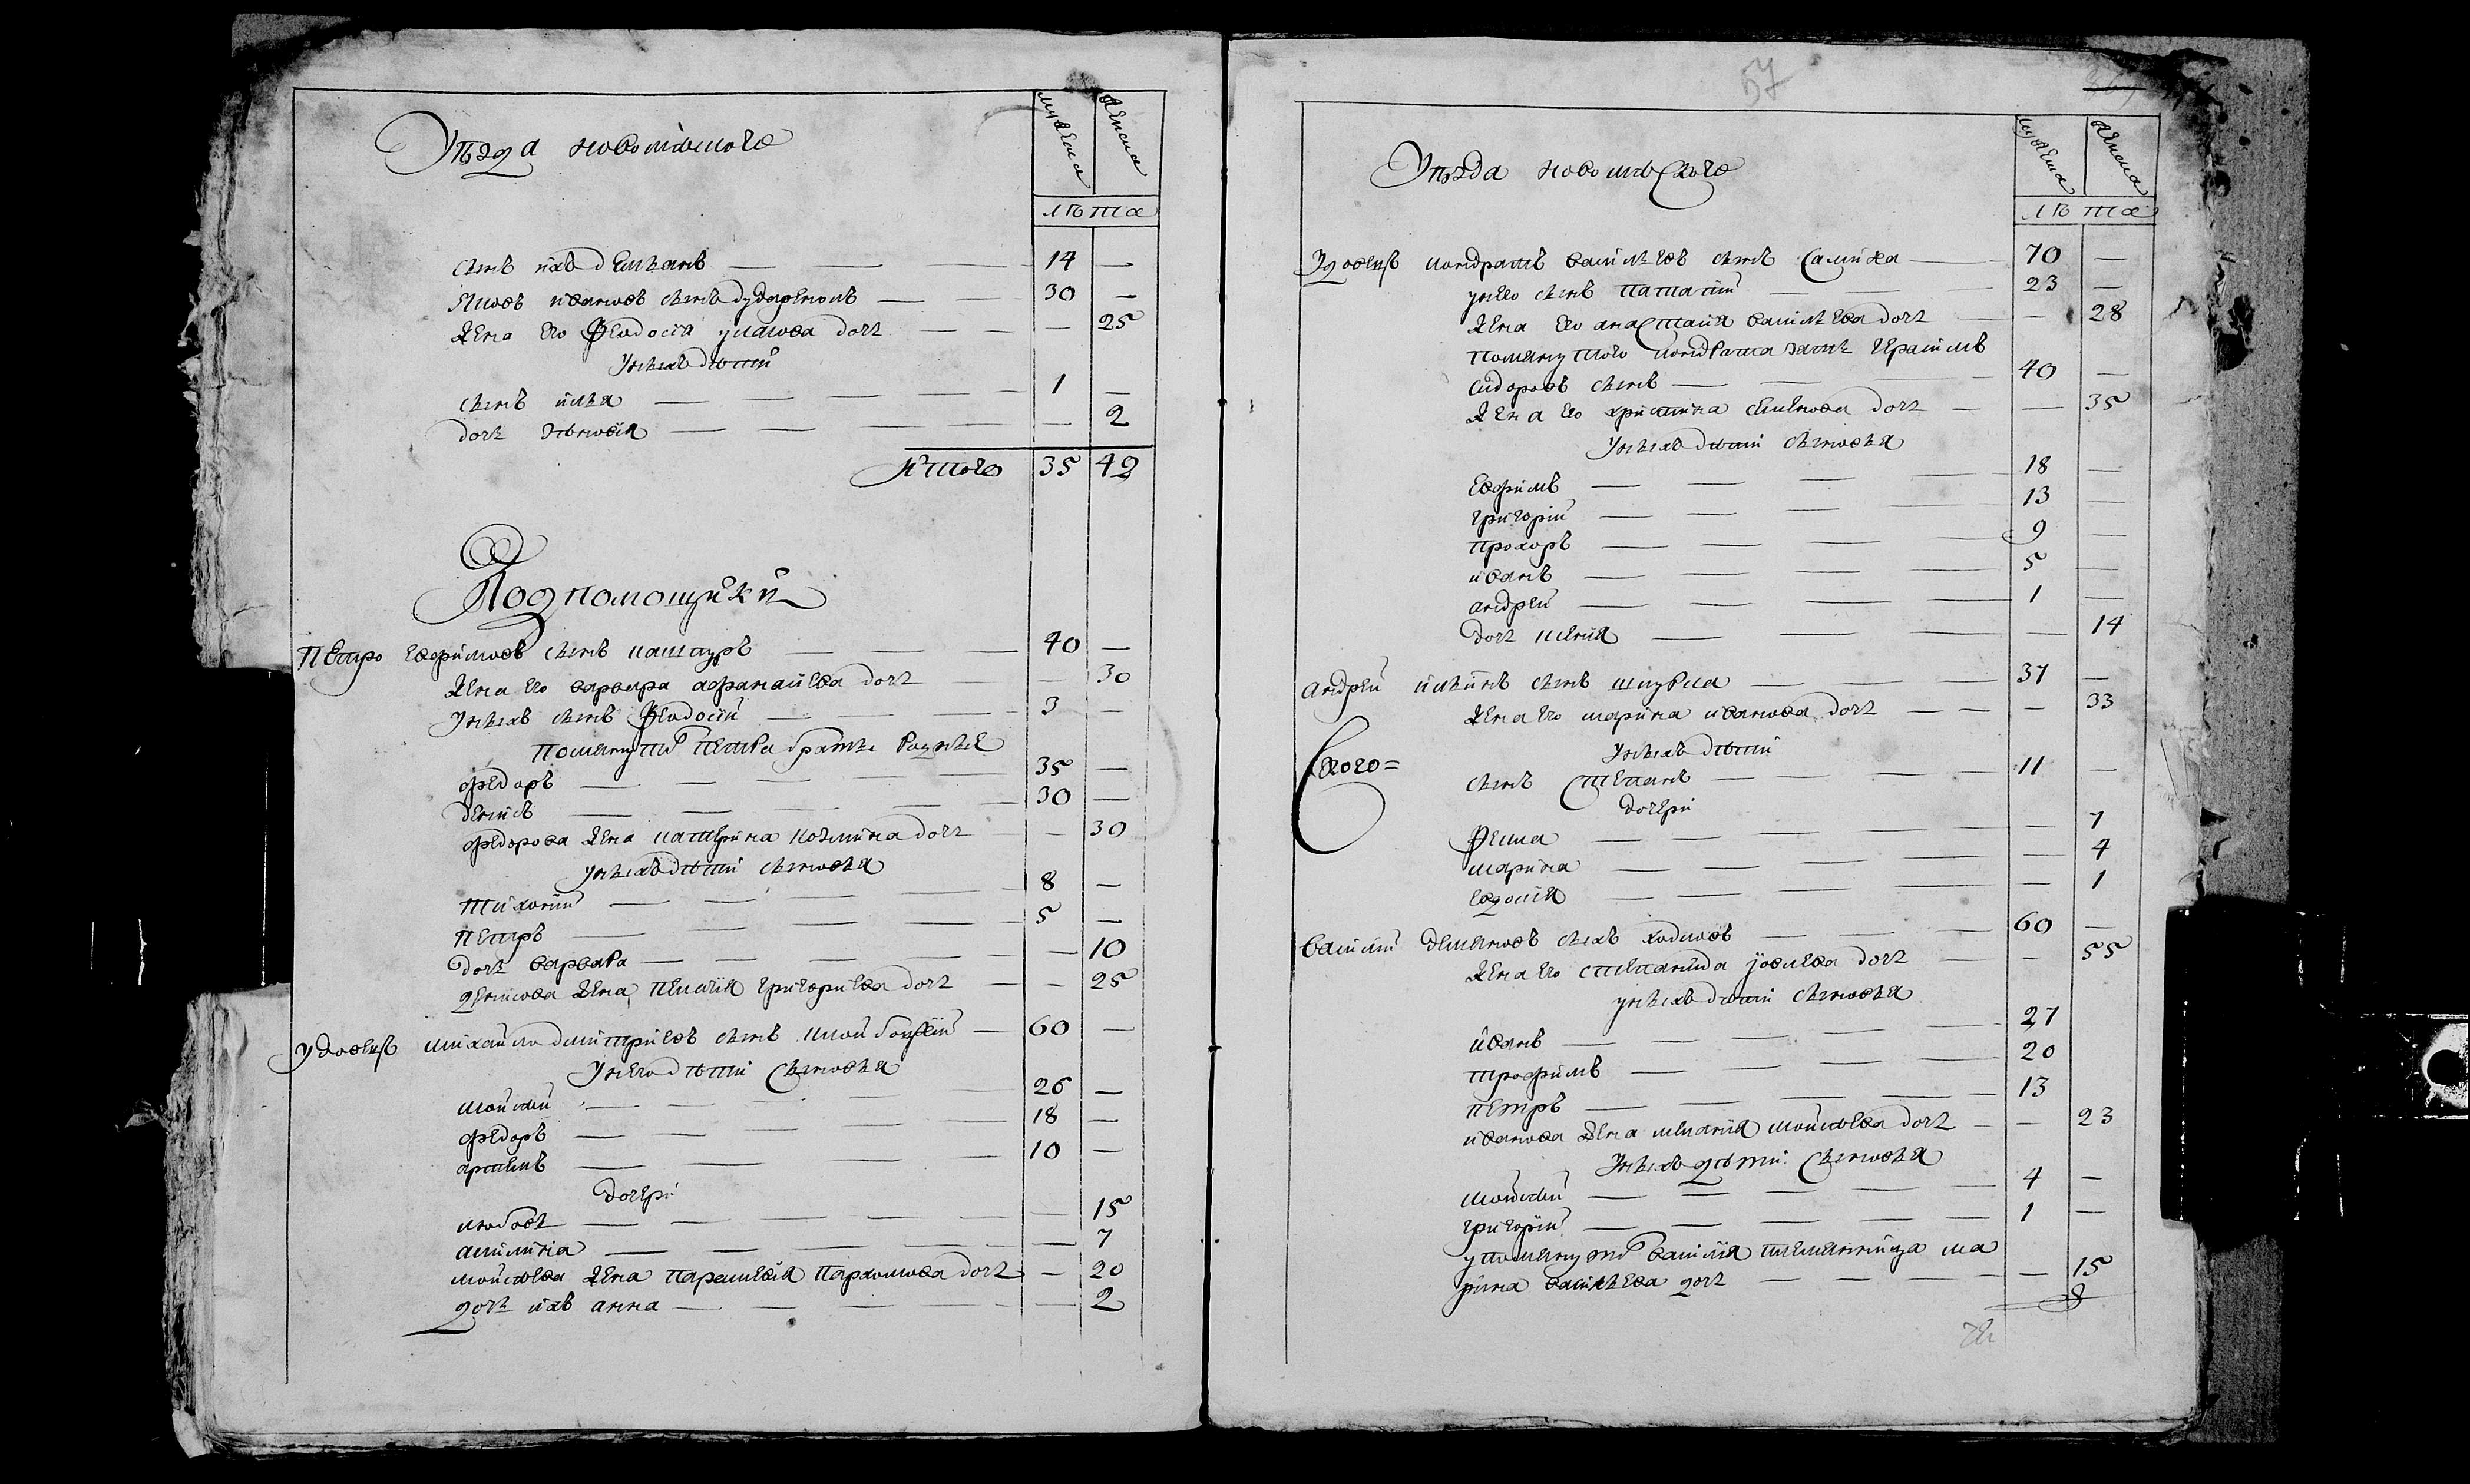 мужеска
женска
Уѣзда новомѣскаго
лѣта
сынъ ихъ демъянъ — 14 —
Яковъ ивановъ сынъ дударенокъ — 30 —
Жена его Феодосия улакова дочь — 25
У ныхъ дѣти
сынъ илья — 1 —
дочь — 2
Итого 35 42
Подпомощики
Петро ефимовъ сынъ кашпуръ — 40 —
Жена его варвара афанасиева дочь — 30
У ныхъ сынъ Феодосий — 3 —
помянутаго петра братъи разныи
федоръ — 35 —
денисъ — 30 —
федорова жена катерина козмина дочь — 30
у ныхъ дѣти сыновья
тихоний — 8 —
петръ — 5 —
дочь варвара — 10
денисова жена пелагия григориева дочь — 25
удовецъ михайло дмитриевъ сынъ — 60 —
У него дѣти сыновья
моисей — 26 —
федоръ — 18 —
артемъ — 10 —
дочери
любовь — 15
акилина — 7
моисеева жена парасковия пархомова дочь — 20
дочь ихъ анна — 2
57
мужеска
женска
Уѣзда новомѣскаго
лѣта
Удовецъ кондратъ василъевъ сынъ салиха — 70 —
у него сынъ патапий — 23 —
Жена его анастасия василъева дочь — 28
помянутого кондрата зять герасимъ
сидоровъ сынъ — 40 —
Жена его христина семенова дочь — 35
У ныхъ дѣти сыновья
ефимъ — 18 —
григорий — 13 —
прохоръ — 9 —
иванъ — 5 —
андрей — 1 —
дочь ксения — 14
андрей илъинъ сынъ шкурка — 37 —
Жена его марина иванова дочь — 33
У ныхъ дѣти
сынъ степанъ — 11 —
дочери
Фекла — 7
марина — 4
евдокия — 1
василий демяновъ сынъ ходковъ — 60 —
Жена его степанида дочь — 55
у ныхъ дѣти сыновья
иванъ — 27
трофимъ — 20
петръ — 13
иванова жена мелания моисеева дочь — 23
У ныхъ дѣти сыновья
моисей — 4 —
григорий — 1 —
у помянутаго василия племянница ма
рина василъева дочь — 15